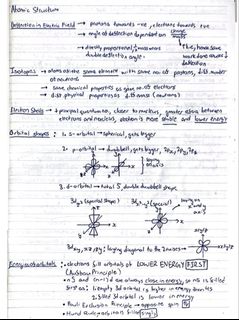 Atomic Structure
Deflection in Electric Field → protons towards -ve, electrons towards +ve
→ angle of deflection dependent on charge/mass
→ directly proportional,
double deflection angle
Isotopes → atoms of the same element with same no. of protons, diff. number
of neutrons
→ same chemical properties as same no. of electrons
→ diff. physical properties as diff. mass (neutrons)
Electron Shells → principal quantum no., closer to nucleus, greater
electrons and nucleus, electron is more stable and lower energy
Orbital shapes : 1. s-orbital → spherical, gets bigger
2. p-orbital → dumbbell, gets bigger, 2px, 2py, 2pz
laying
on
axis
3. d-orbital → total 5, double dumbbell shape
3dz² (special shape)
laying
on
axis
3dxy, xz, yz; laying diagonal to the 2 axes →
Energy of orbitals : electrons fill orbitals of LOWER ENERGY FIRST
(Aufbau Principle)
are always close in energy, so 4s is filled
first as: 1. empty 3d orbital is higher in energy
2. filled 3d orbital is lower in energy
Pauli Exclusion Principle → opposite spin
Hund Rule, orbitals filled singly